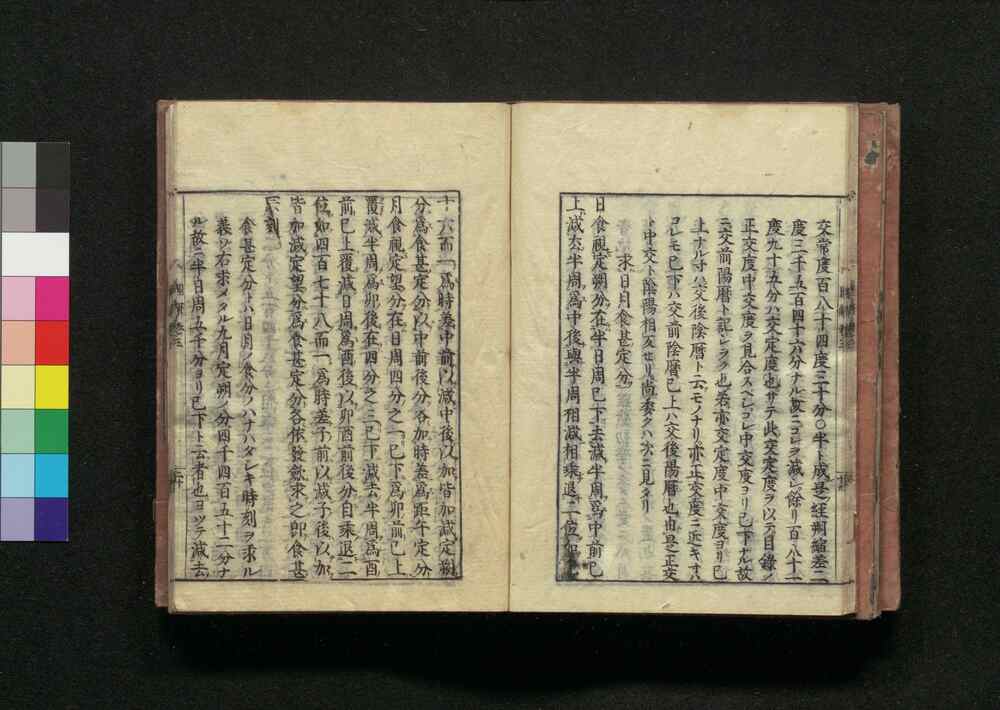 交常度百八十四度三十分〇半ト成是ニ経朔縮差二
度三千五百四十六分ナル故ニコレヲ減シ餘リ百八十一
度九十五分ハ交定度也サテ此交定度ヲ以テ目錄ノ
正交度中交度ヲ見合スヘシコレ中交度ヨリ已下ナル故
正交前陽暦ト記シヲク也若亦交定度中交度ヨリ已
上ナル寸ハ交後陰暦ト云モノナリ亦正交度ニ近キ寸ハ
コレモ已下ハ交前陰暦已上ハ交後陽暦也由是正交
ト中交ト陰陽相反セリ尚委クハ次ニ見タリ
求日月食甚定分
日食視定朔分在半日周已下去減半周爲中前已
上減去半周爲中後與半周相減相乘退二位如九
十六而一爲時差中前以減中後以加皆加減定朔
分爲食甚定分以中前後分各加時差爲距午定分
月食視定望分在日周四分之一已下爲卯前已上
覆減半周爲卯後在四分之三已下減去半周爲酉
前已上覆減日周爲酉後以卯酉前後分自乘退二
位如四百七十八而一爲時差子前以減子後以加
皆加減定望分爲食甚定分各依發斂求之即食甚
辰刻
食甚定分トハ日月ノ食分ノハナハタシキ時刻ヲ求ル
義ソ右求メタル九月定朔ノ分四千四百五十二分ナ
ル故ニ半日周五千分ヨリ已下ト云者也ヨツテ減去